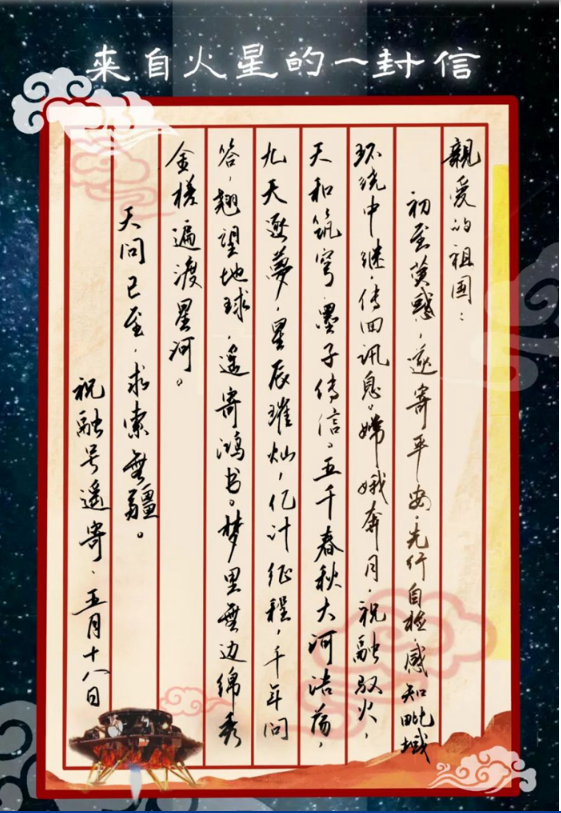 来自火星的一封信
親爱的祖国：
初至荧惑，遂寄平安，先行自检，感知毗域
环绕中继，传回讯息。嫦娥奔月，祝融驭火，
天和筑穹，墨子传信。五千春秋大河浩荡，
九天逐夢，星辰璀灿，亿计征程，千年问
答，翘望地球，遥寄鸿书。梦里無边绵秀
金槎遍渡星河。
天问已至，求索無疆。
祝融号遥寄，五月十八日